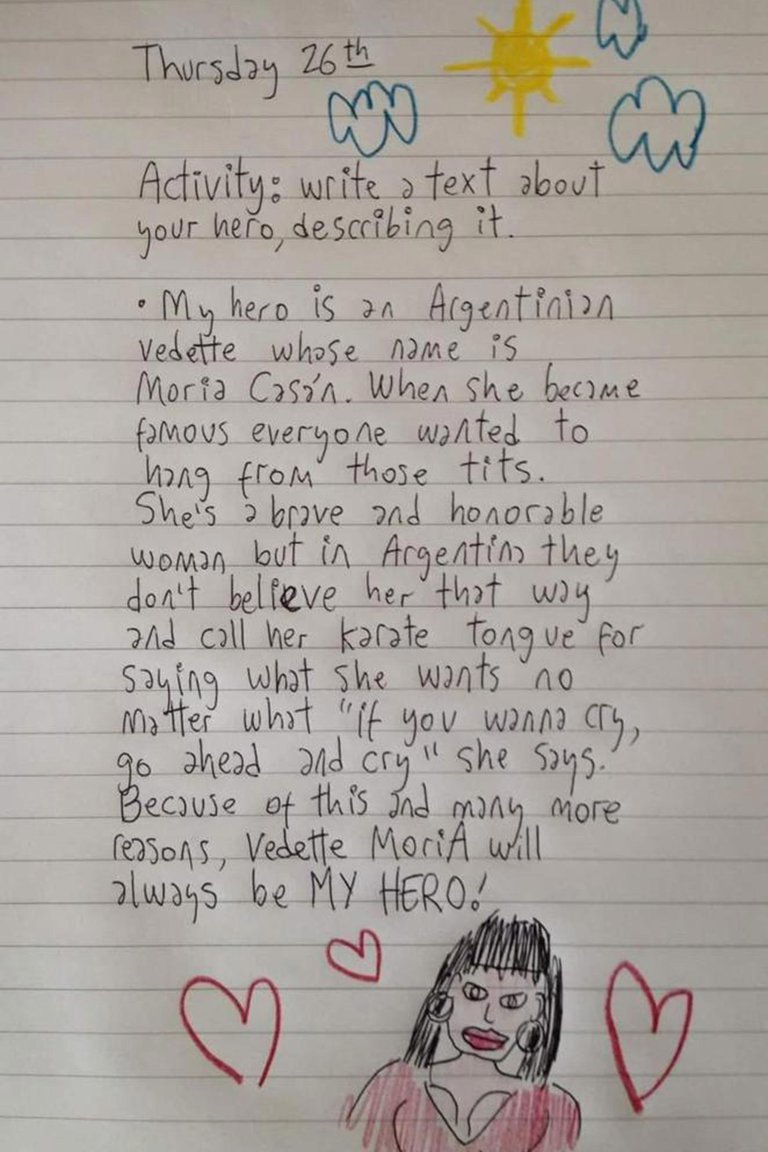 Thursday 26th
Activity: write a text about
your hero, describing it.
• My hero is an Argentinian
Vedette whose name is
Moria Casán. When she became
famous everyone wanted to
hang from those tits.
She's a brave and honorable
woman but in Argentina they
don't believe her that way
and call her karate tongue for
saying what she wants no
matter what "if you wanna cry,
go ahead and cry" she says.
Because of this and many more
reasons, Vedette MoriA will
always be MY HERO!